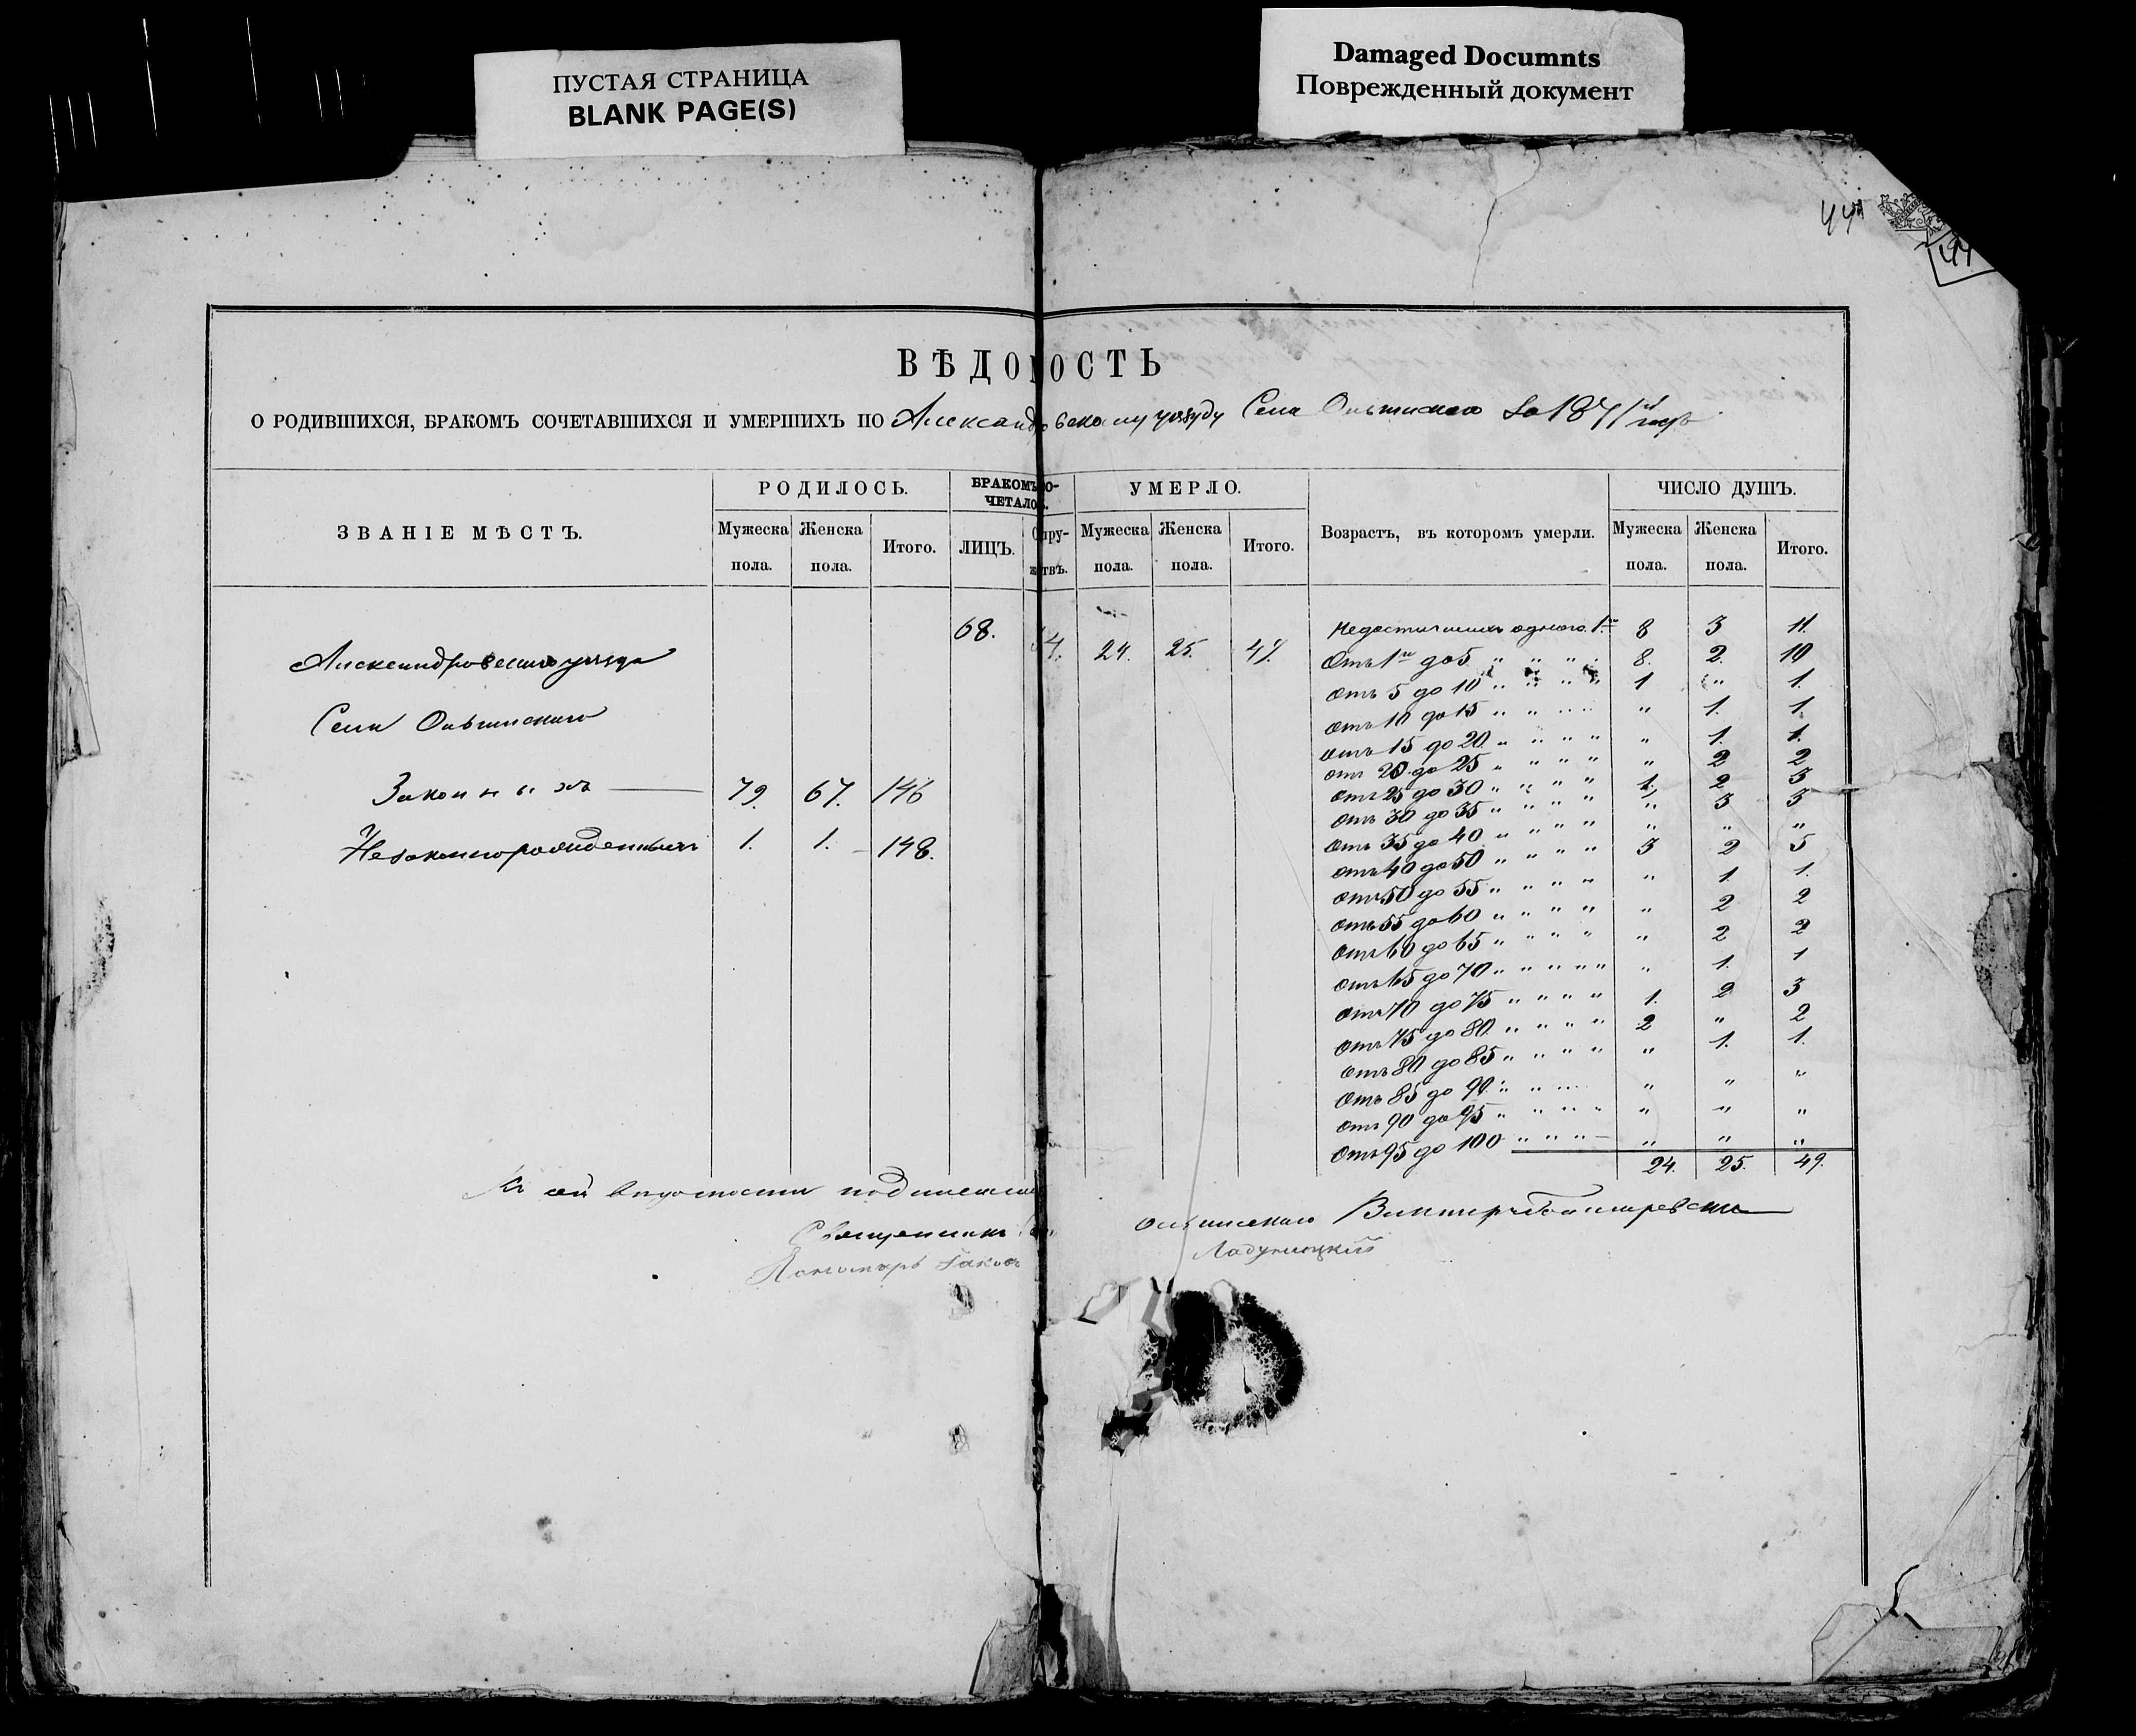 ПУСТАЯ СТРАНИЦА
BLANK PAGE(S)
Damaged Documnts
Поврежденный документ
44
44
ВѢДОМОСТЬ
О РОДИВШИХСЯ, БРАКОМЪ СОЧЕТАВШИХСЯ И УМЕРШИХЪ ПО Александровскому уѣзду Села Ольгинскаго за 1871й годъ
ЗВАНІЕ МѢСТЪ. РОДИЛОСЬ. БРАКОМЪ СО-ЧЕТАЛОСЬ. УМЕРЛО. Возрастъ, въ которомъ умерли. ЧИСЛО ДУШЪ.
Мужеска пола. Женска пола. Итого. ЛИЦЪ. Супру-жествъ. Мужеска пола. Женска пола. Итого. Мужеска пола. Женска пола. Итого.
68. 34. 24. 25. 49.
Александровскаго уѣзда
Села Ольгинскаго
Законныхъ — 79. 67. 146
Незаконнорожденныхъ 1. 1. 148.
Недостигшихъ одного 1го 8 3 11.
Отъ 1го до 5 " " " " 8. 2. 10
Отъ 5 до 10 " " " " 1 " 1.
Отъ 10 до 15 " " " " " 1. 1.
Отъ 15 до 20 " " " " " 1. 1.
Отъ 20 до 25 " " " " " 2 2
Отъ 25 до 30 " " " " 1. 2 3
Отъ 30 до 35 " " " " " 3 3
Отъ 35 до 40 " " " " " " "
Отъ 40 до 50 " " " " 3 2 5
Отъ 50 до 55 " " " " " 1. 1.
Отъ 55 до 60 " " " " " 2 2
Отъ 60 до 65 " " " " " 2 2
Отъ 65 до 70 " " " " " " 1. 1
Отъ 70 до 75 " " " " 1. 2 3
Отъ 75 до 80 " " " " 2 " 2
Отъ 80 до 85 " " " " " 1. 1.
Отъ 85 до 90 " " " " " "
Отъ 90 до 95 " " " " " " "
Отъ 95 до 100 " " " " " "
24. 25. 49.
Къ сей вѣдомости подписались
Священникъ Села Ольгинскаго Викторъ
Пономарь Іаковъ Ладухицкій